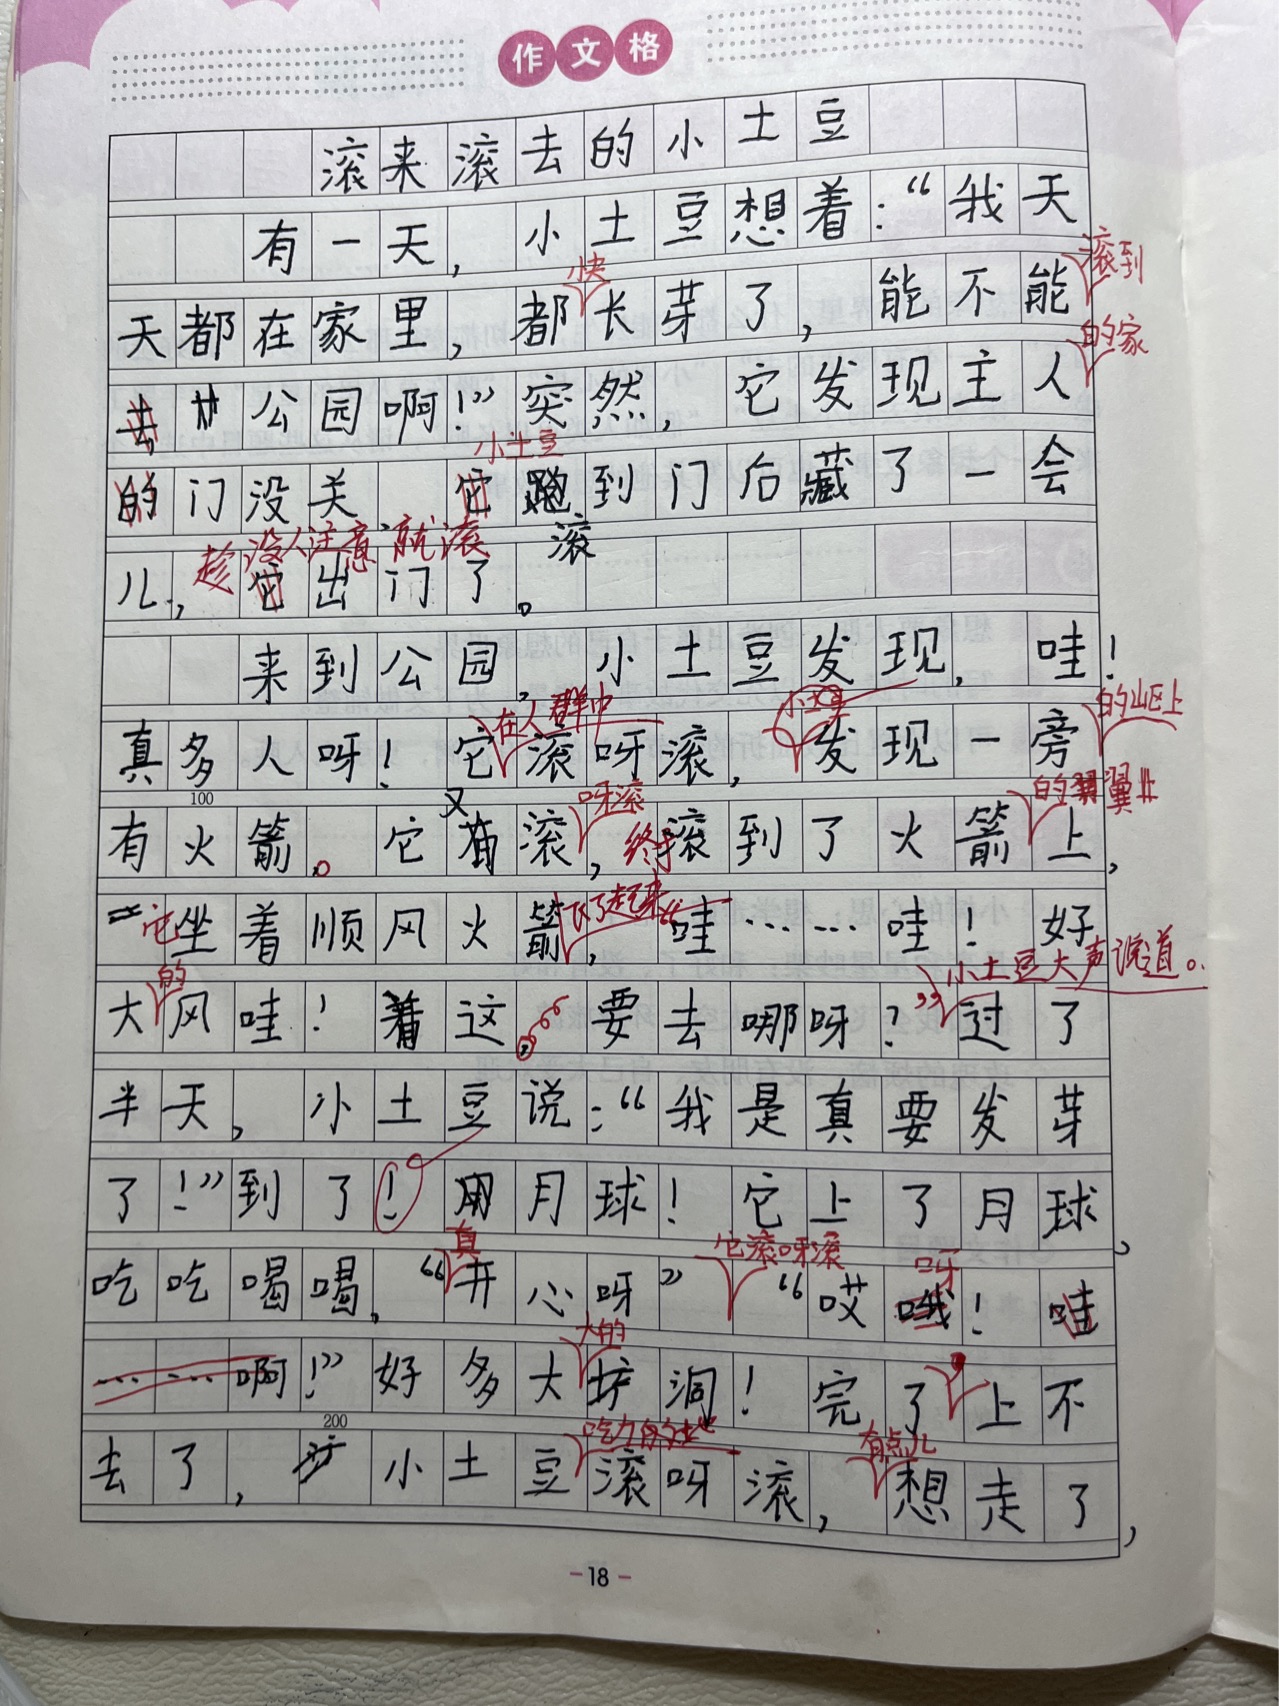 作文格
滚来滚去的小土豆
有一天，小土豆想着：“我天
滚到
快
天都在家里，都长芽了，能不能
的家
去公园啊！”突然，它发现主人
小土豆
的门没关，它跑到门后藏了一会
滚
趁没人注意，就滚
儿，它出门了。
来到公园，小土豆发现，哇！
在人群中
小土豆
的山丘上
真多人呀！它滚呀滚，发现一旁
100
又
呀滚
终于
的翼
有火箭。它滚，滚到了火箭上，
它
飞了起来
坐着顺风火箭，“哇……哇！好
的
小土豆大声说道。
大风哇！着这，要去哪呀？”过了
半天，小土豆说：“我是真要发芽
了！”到了！月球！它上了月球，
真
它滚呀滚
呀
吃吃喝喝，“开心呀”“哎哦！哇
大的
……啊！”好多大坑洞！完了上不
200
吃力的
有点儿
去了，小土豆滚呀滚，想走了，
-18-